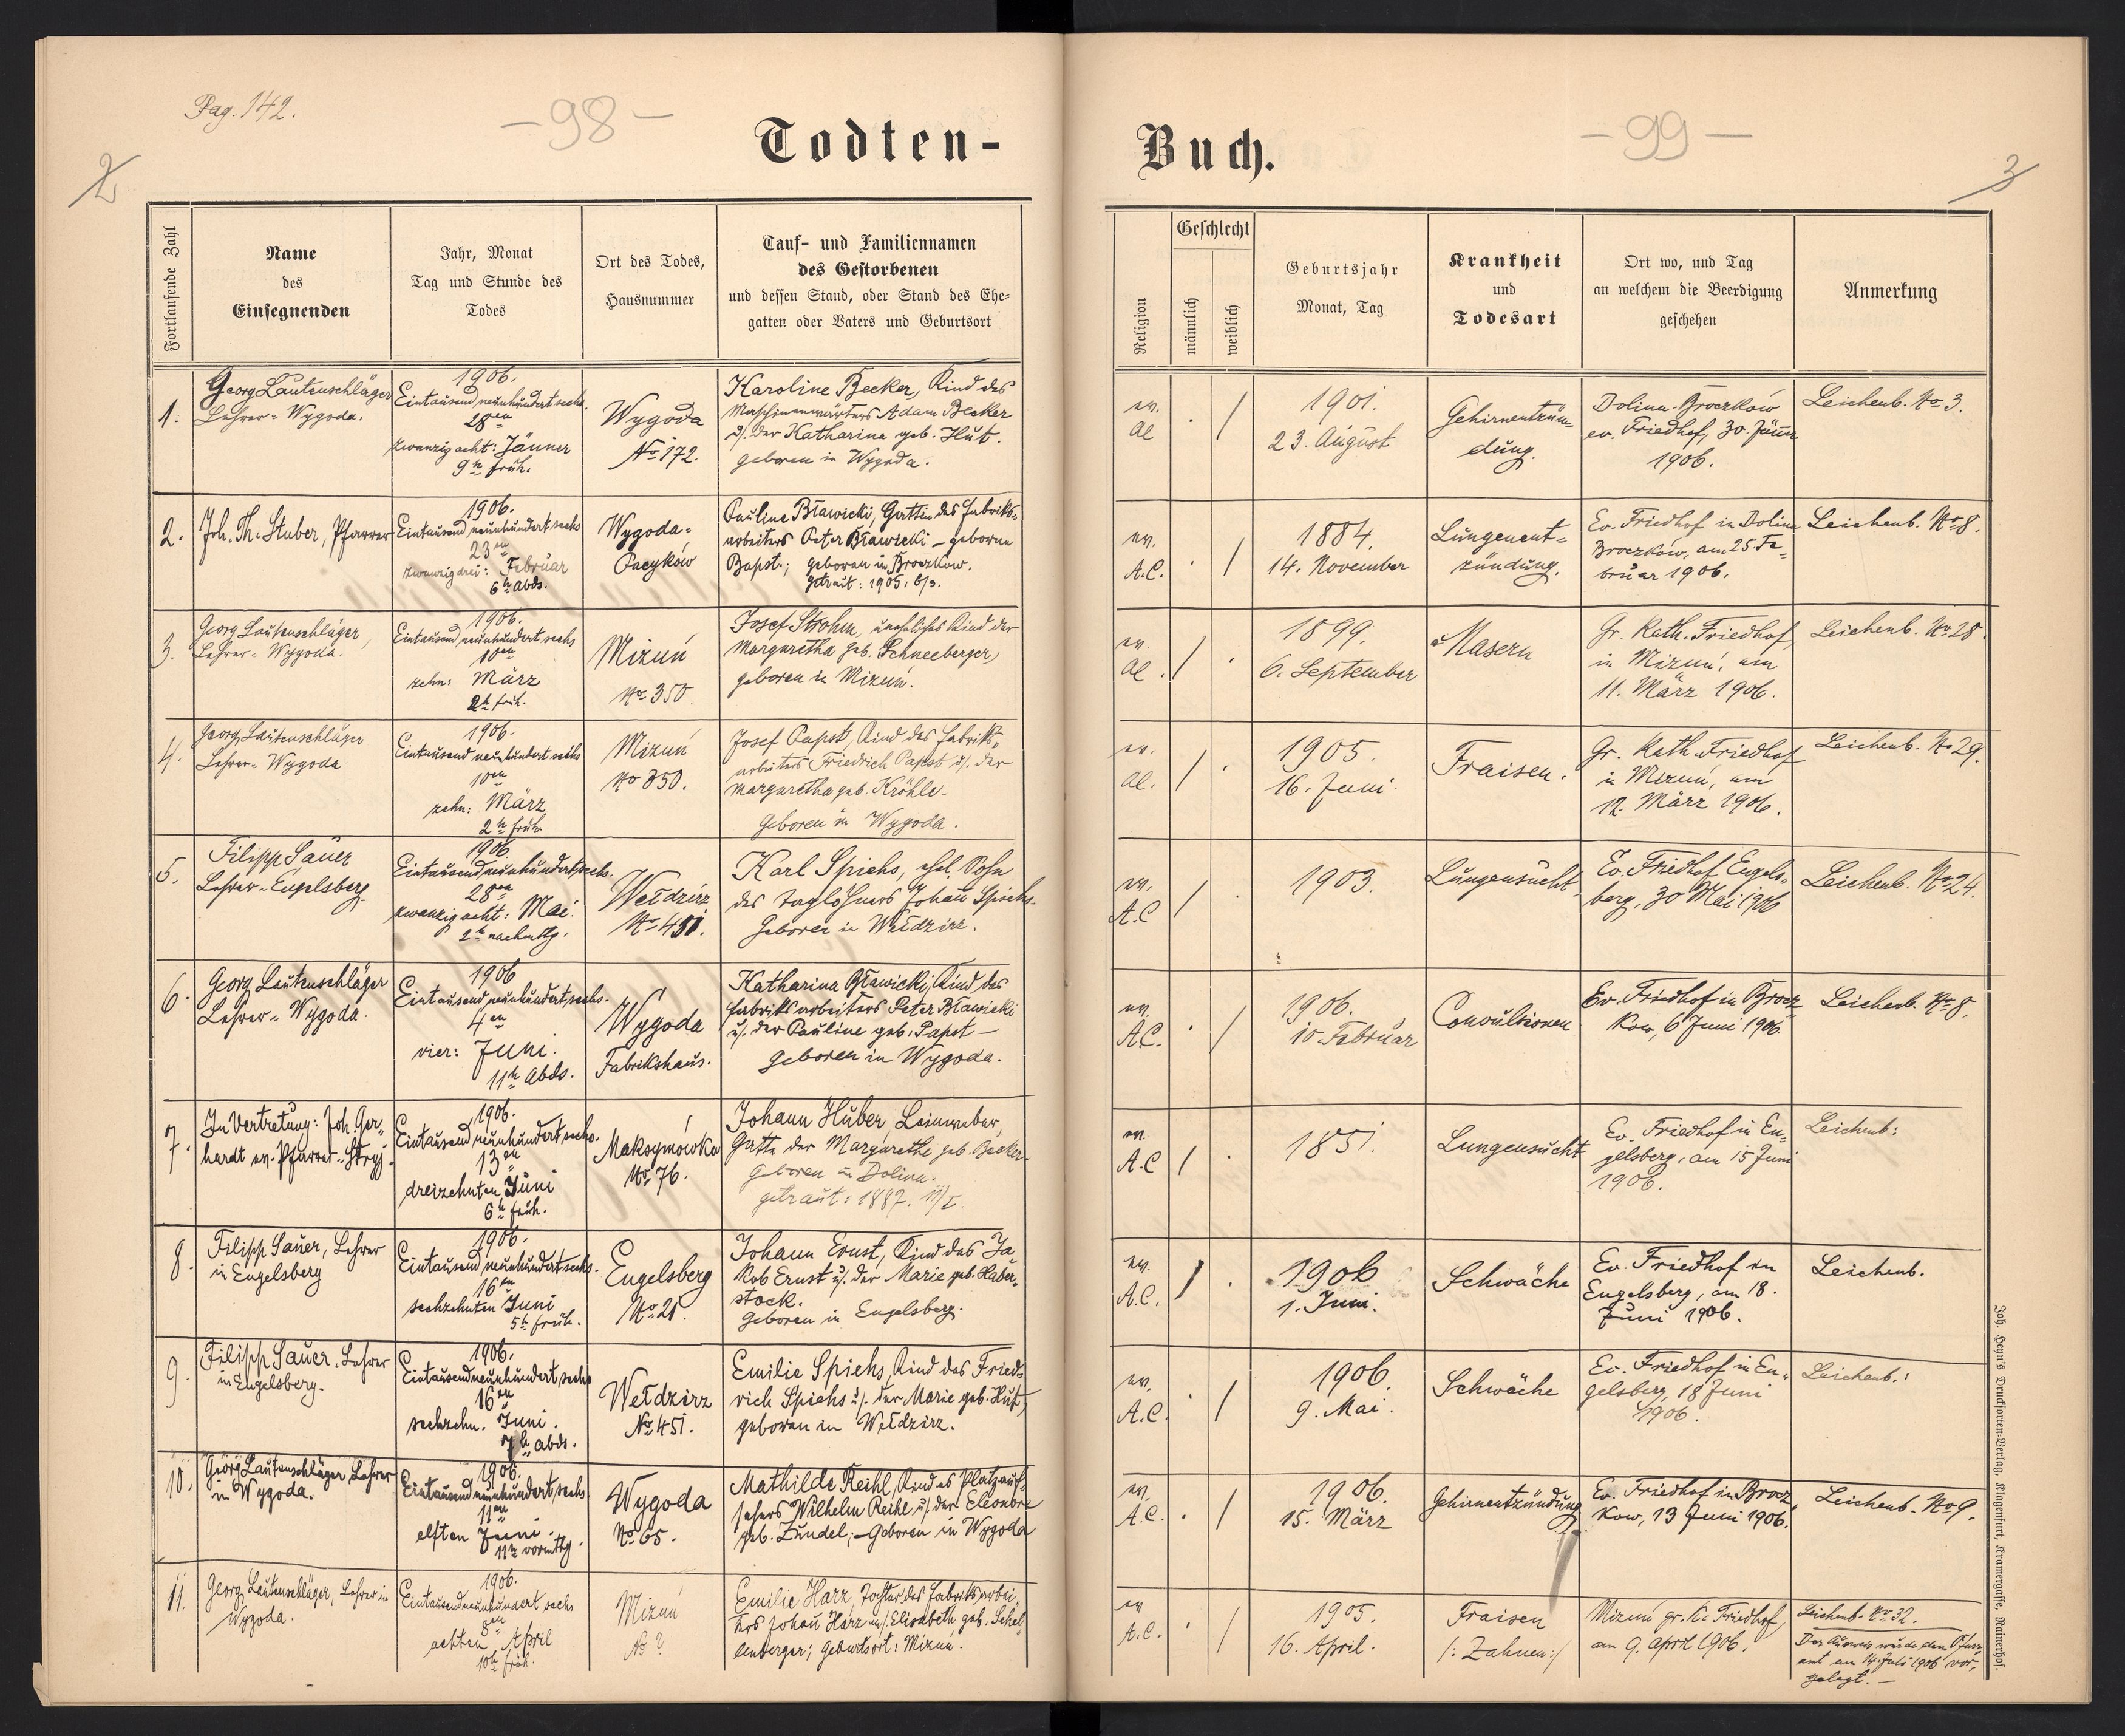 Pag. 142.
- 98 -
2
Todten-
Fortlaufende Zahl
Name
des
Einsegnenden
Jahr, Monat
Tag und Stunde des
Todes
Ort des Todes,
Hausnummer
Tauf- und Familiennamen
des Gestorbenen
und dessen Stand, oder Stand des Ehe-
gatten oder Vaters und Geburtsort
1.
Georg Lautenschläger
Lehrer - Wygoda.
1906.
Eintausendneunhundertsechs.
28en
zwanzigacht: Jänner
9h früh.
Wygoda
No 172.
Karoline Becker, Kind des
Maschinenwärters Adam Becker
u/. der Katharina geb. Hut.
geboren in Wygoda.
2.
Joh. Th. Stuber, Pfarrer
1906.
Eintausendneunhundertsechs
23en
zwanzigdrei: Februar
6h abds.
Wygoda-
Pacyków
Pauline Bławicki, Gattin des Fabriks-
arbeiters Peter Bławicki - geborne
Bapst.; geboren in Broczkow.
Getraut: 1905. 6/3.
3.
Georg Lautenschläger,
Lehrer - Wygoda.
1906.
Eintausendneunhundertsechs
10en
zehn: März
2h früh.
Mizuń
No 350
Josef Strohm, uneheliches Kind der
Margaretha geb. Schneeberger,
geboren in Mizun.
4.
Georg Lautenschläger
Lehrer - Wygoda
1906.
Eintausendneunhundertsechs
10en
zehn: März
2h früh
Mizuń
No 350.
Josef Papst, Kind des Fabriks-
arbeiters Friedrich Papst u/. der
Margaretha geb. Kröhle.
Geboren in Wygoda.
5.
Filipp Sauer
Lehrer - Engelsberg.
1906
Eintausendneunhundertsechs.
28en
zwanzigacht: Mai.
2h nachmttg.
Wełdzirz
No 451.
Karl Spiehs, ehel. Sohn
des Taglöhners Johann Spiehs.
Geboren in Wełdzirz.
6.
Georg Lautenschläger
Lehrer - Wygoda.
1906
Eintausendneunhundertsechs.
4en
vier: Juni.
11h Abds.
Wygoda
Fabrikshaus.
Katharina Bławicki, Kind des
Fabriksarbeiters Peter Bławicki
u/. der Pauline geb. Papst -
Geboren in Wygoda.
7.
In Vertretung: Joh. Ger-
hardt ev. Pfarrer - Stryj.
1906.
Eintausendneunhundertsechs.
13en
dreizehnten Juni
6h früh.
Maksymówka
No 76.
Johann Huber, Leinweber,
Gatte der Margarethe geb. Becker.
Geboren in Dolina.
getraut: 1887. 11/I.
8.
Filipp Sauer, Lehrer
in Engelsberg
1906.
Eintausendneunhundertsechs.
16en
sechzehnten Juni
5h früh.
Engelsberg
No 21.
Johann Ernst, Kind des Ja-
kob Ernst u/. der Marie geb. Haber-
stock.
Geboren in Engelsberg.
9.
Filipp Sauer, Lehrer
in Engelsberg.
1906.
Eintausendneunhundertsechs
16en
sechzehn. Juni.
7h abds.
Wełdzirz
No 451.
Emilie Spiehs, Kind des Fried-
rich Spiehs u/. der Marie geb. Hut,
geboren in Wełdzirz.
10.
Georg Lautenschläger, Lehrer
in Wygoda.
1906.
Eintausendneunhundertsechs.
11en
elften Juni.
11h vormttg.
Wygoda
No 65.
Mathilde Reihl, Kind es Platzauf-
sehers Wilhelm Reihl u/. der Eleonore
geb. Zundel; - Geboren in Wygoda
11.
Georg Lautenschläger, Lehrer in
Wygoda.
1906.
Eintausendneunhundertsechs
8en
achten April
10h früh.
Mizuń
No ?
Emilie Harz, Tochter des Fabriksarbei-
ters Johann Harz u/. Elisabeth geb. Schel-
lenberger; Geburtsort: Mizun.
Buch.
- 99 -
3
Religion
Geschlecht
männlich
weiblich
Geburtsjahr
Monat, Tag
Krankheit
und
Todesart
Ort wo, und Tag
an welchem die Beerdigung
geschehen
Anmerkung
ev.
AC
1901.
23. August
Gehirnentzün-
dung.
Dolina-Broczków
ev. Friedhof, 30. Jänner
1906.
Leichenb. No 3.
ev.
A.C.
1884.
14. November
Lungenent-
zündung.
Ev. Friedhof in Dolina
Broczków, am 25. Fe-
bruar 1906.
Leichenb. No 8.
ev.
AC.
1899.
6. September
Masern
Gr. Kath. Friedhof
in Mizuń, am
11. März 1906.
Leichenb. No 28.
ev.
AC.
1905.
16. Juni
Fraisen.
Gr. Kath. Friedhof
in Mizuń, am
12. März 1906.
Leichenb. No 29.
ev.
A.C
1903.
Lungensucht
Ev. Friedhof Engels-
berg, 30 Mai 1906
Leichenb. No 24.
ev.
A.C.
1906.
10. Februar
Convulsionen
Ev. Friedhof in Brocz
kow, 6 Juni 1906.
Leichenb. No 8.
ev.
A.C
1851
Lungensucht
Ev. Friedhof in En-
gelsberg, am 15 Juni
1906.
Leichenb:
ev.
A.C.
1906
1. Juni.
Schwäche
Ev. Friedhof in
Engelsberg, am 18.
Juni 1906.
Leichenb.
ev.
A.C.
1906.
9. Mai.
Schwäche
Ev. Friedhof in En-
gelsberg, 18 Juni
1906.
Leichenb.:
ev.
A.C.
1906.
15. März
Gehirnentzündung
Ev. Friedhof in Brocz
kow, 13 Juni 1906.
Leichenb. No 9.
ev
A.C.
1905.
16. April.
Fraisen
/: Zahnen :/
Mizuń gr. K. Friedhof,
am 9. April 1906.
Leichenb. No 32.
Der Ausweis wurde dem Pfarr-
amt am 14. Juli 1906 vor-
gelegt. -
Joh. Heyn's Drucksorten-Verlag, Klagenfurt, Kramergasse, Rainerhof.